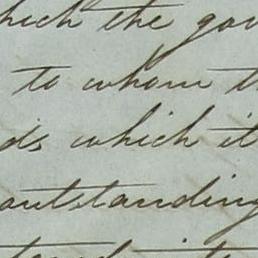 which the gov
to whom th
ds which it
outstanding